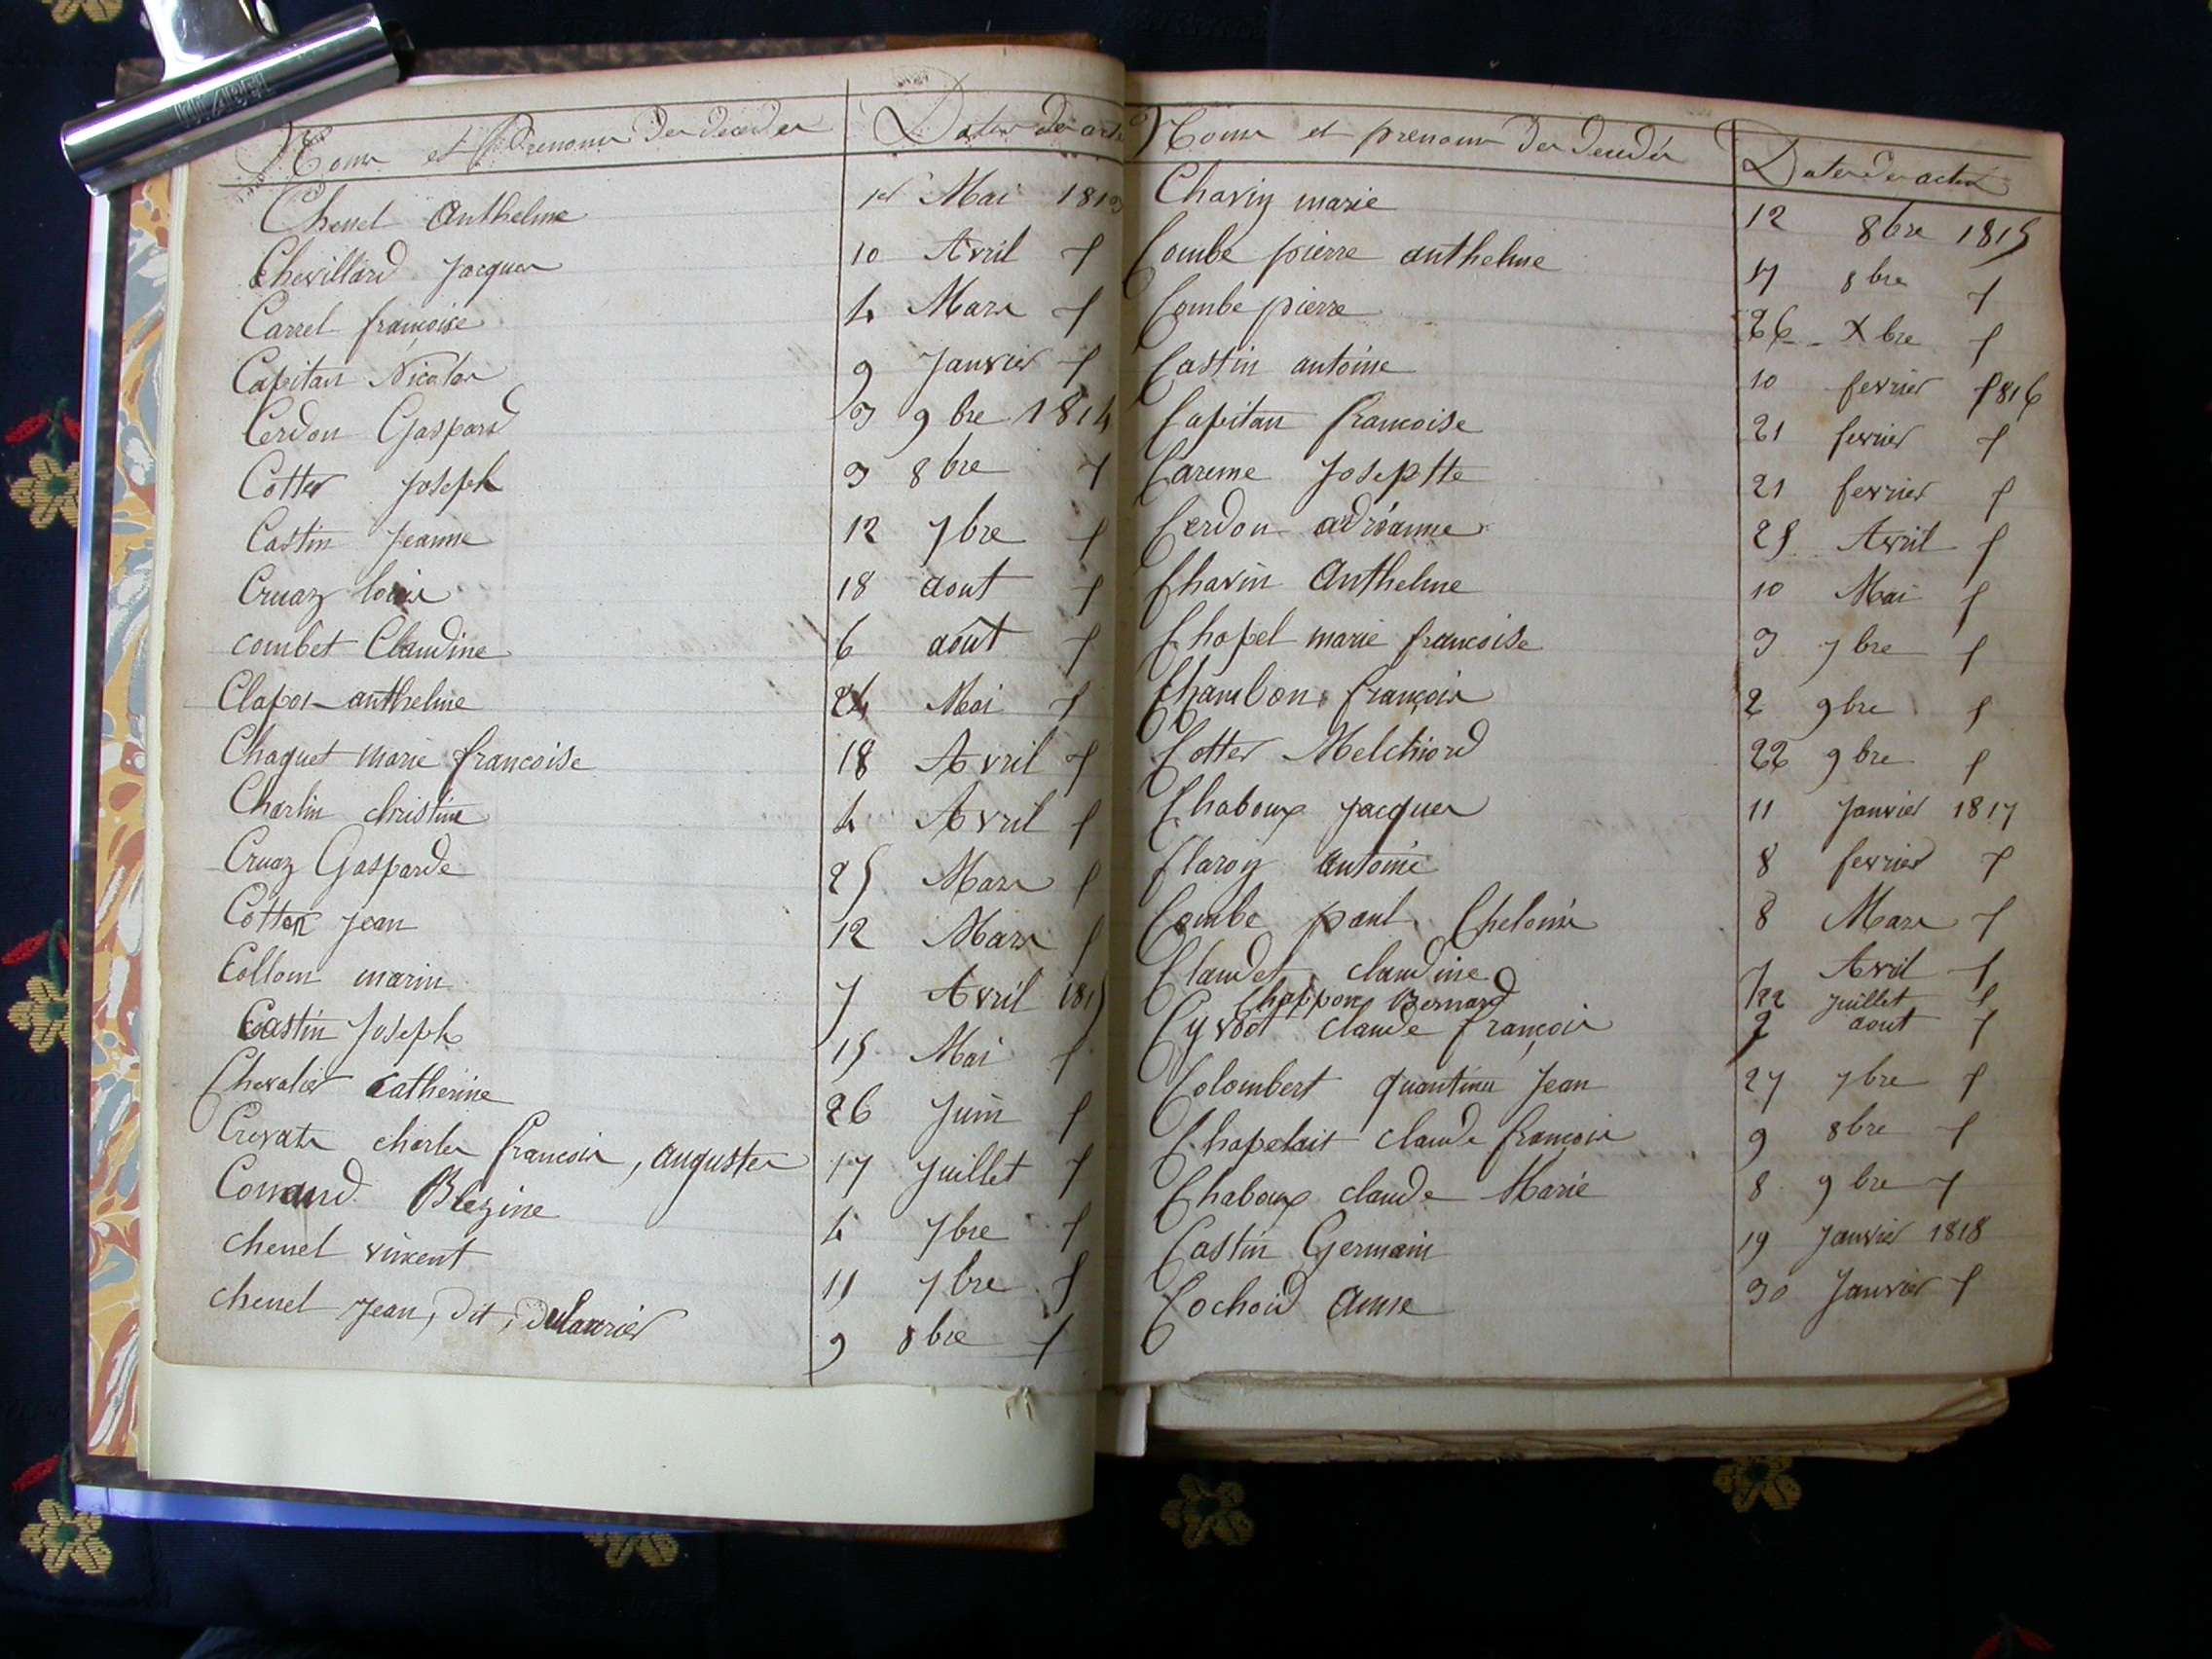 Noms et Prenoms des decedes Dates des actes
Chenel Anthelme 1er Mai 1813
Chevillard Jacques 10 Avril f
Carrel francoise 4 Mars f
Capitan Nicolas 9 Janvier f
Cerdon Gaspard 3 9bre 1814
Cotter Joseph 3 8bre f
Castin Jeanne 12 7bre f
Cruaz louis 18 aout f
combet Claudine 6 août f
Clapot anthelme 24 Mai f
Chaquet marie francoise 18 Avril f
Charlin christine 4 Avril f
Cruaz Gasparde 25 Mars f
Cotter Jean 12 Mars f
Collom marin 7 Avril 1815
Castin Joseph 15 Mai f
Chevalier Catherine 26 Juin f
Crevats charles francois, augustes 17 Juillet f
Blezine 4 7bre f
chenel vincent 11 7bre f
chenel Jean, dit, Dulaurier 9 8bre f
Noms et prenoms des decedés Dates des actes
Chavin marie 12 8bre 1815
Combe pierre anthelme 17 8bre f
Combe pierre 26 Xbre f
Castin antoine 10 fevrier 1816
Capitan francoise 21 fevrier f
Careme Josephte 21 fevrier f
Cerdon adrianne 25 Avril f
Chavin Anthelme 10 Mai f
Chapel marie francoise 3 7bre f
Chambon françois 2 9bre f
Cotter Melchiord 22 9bre f
Chaboux Jacques 11 Janvier 1817
Claroy antoine 8 fevrier f
Combe paul 8 Mars f
Claudet claudine 7 Avril f
Chappon Bernard 22 Juillet f
Cyvoct claude françois 7 aout f
Colombert quantine Jean 27 7bre f
Chapelait claude francois 9 8bre f
Chaboux claude Marie 8 9bre f
Castin Germain 19 Janvier 1818
Cochoid Anne 30 Janvier f